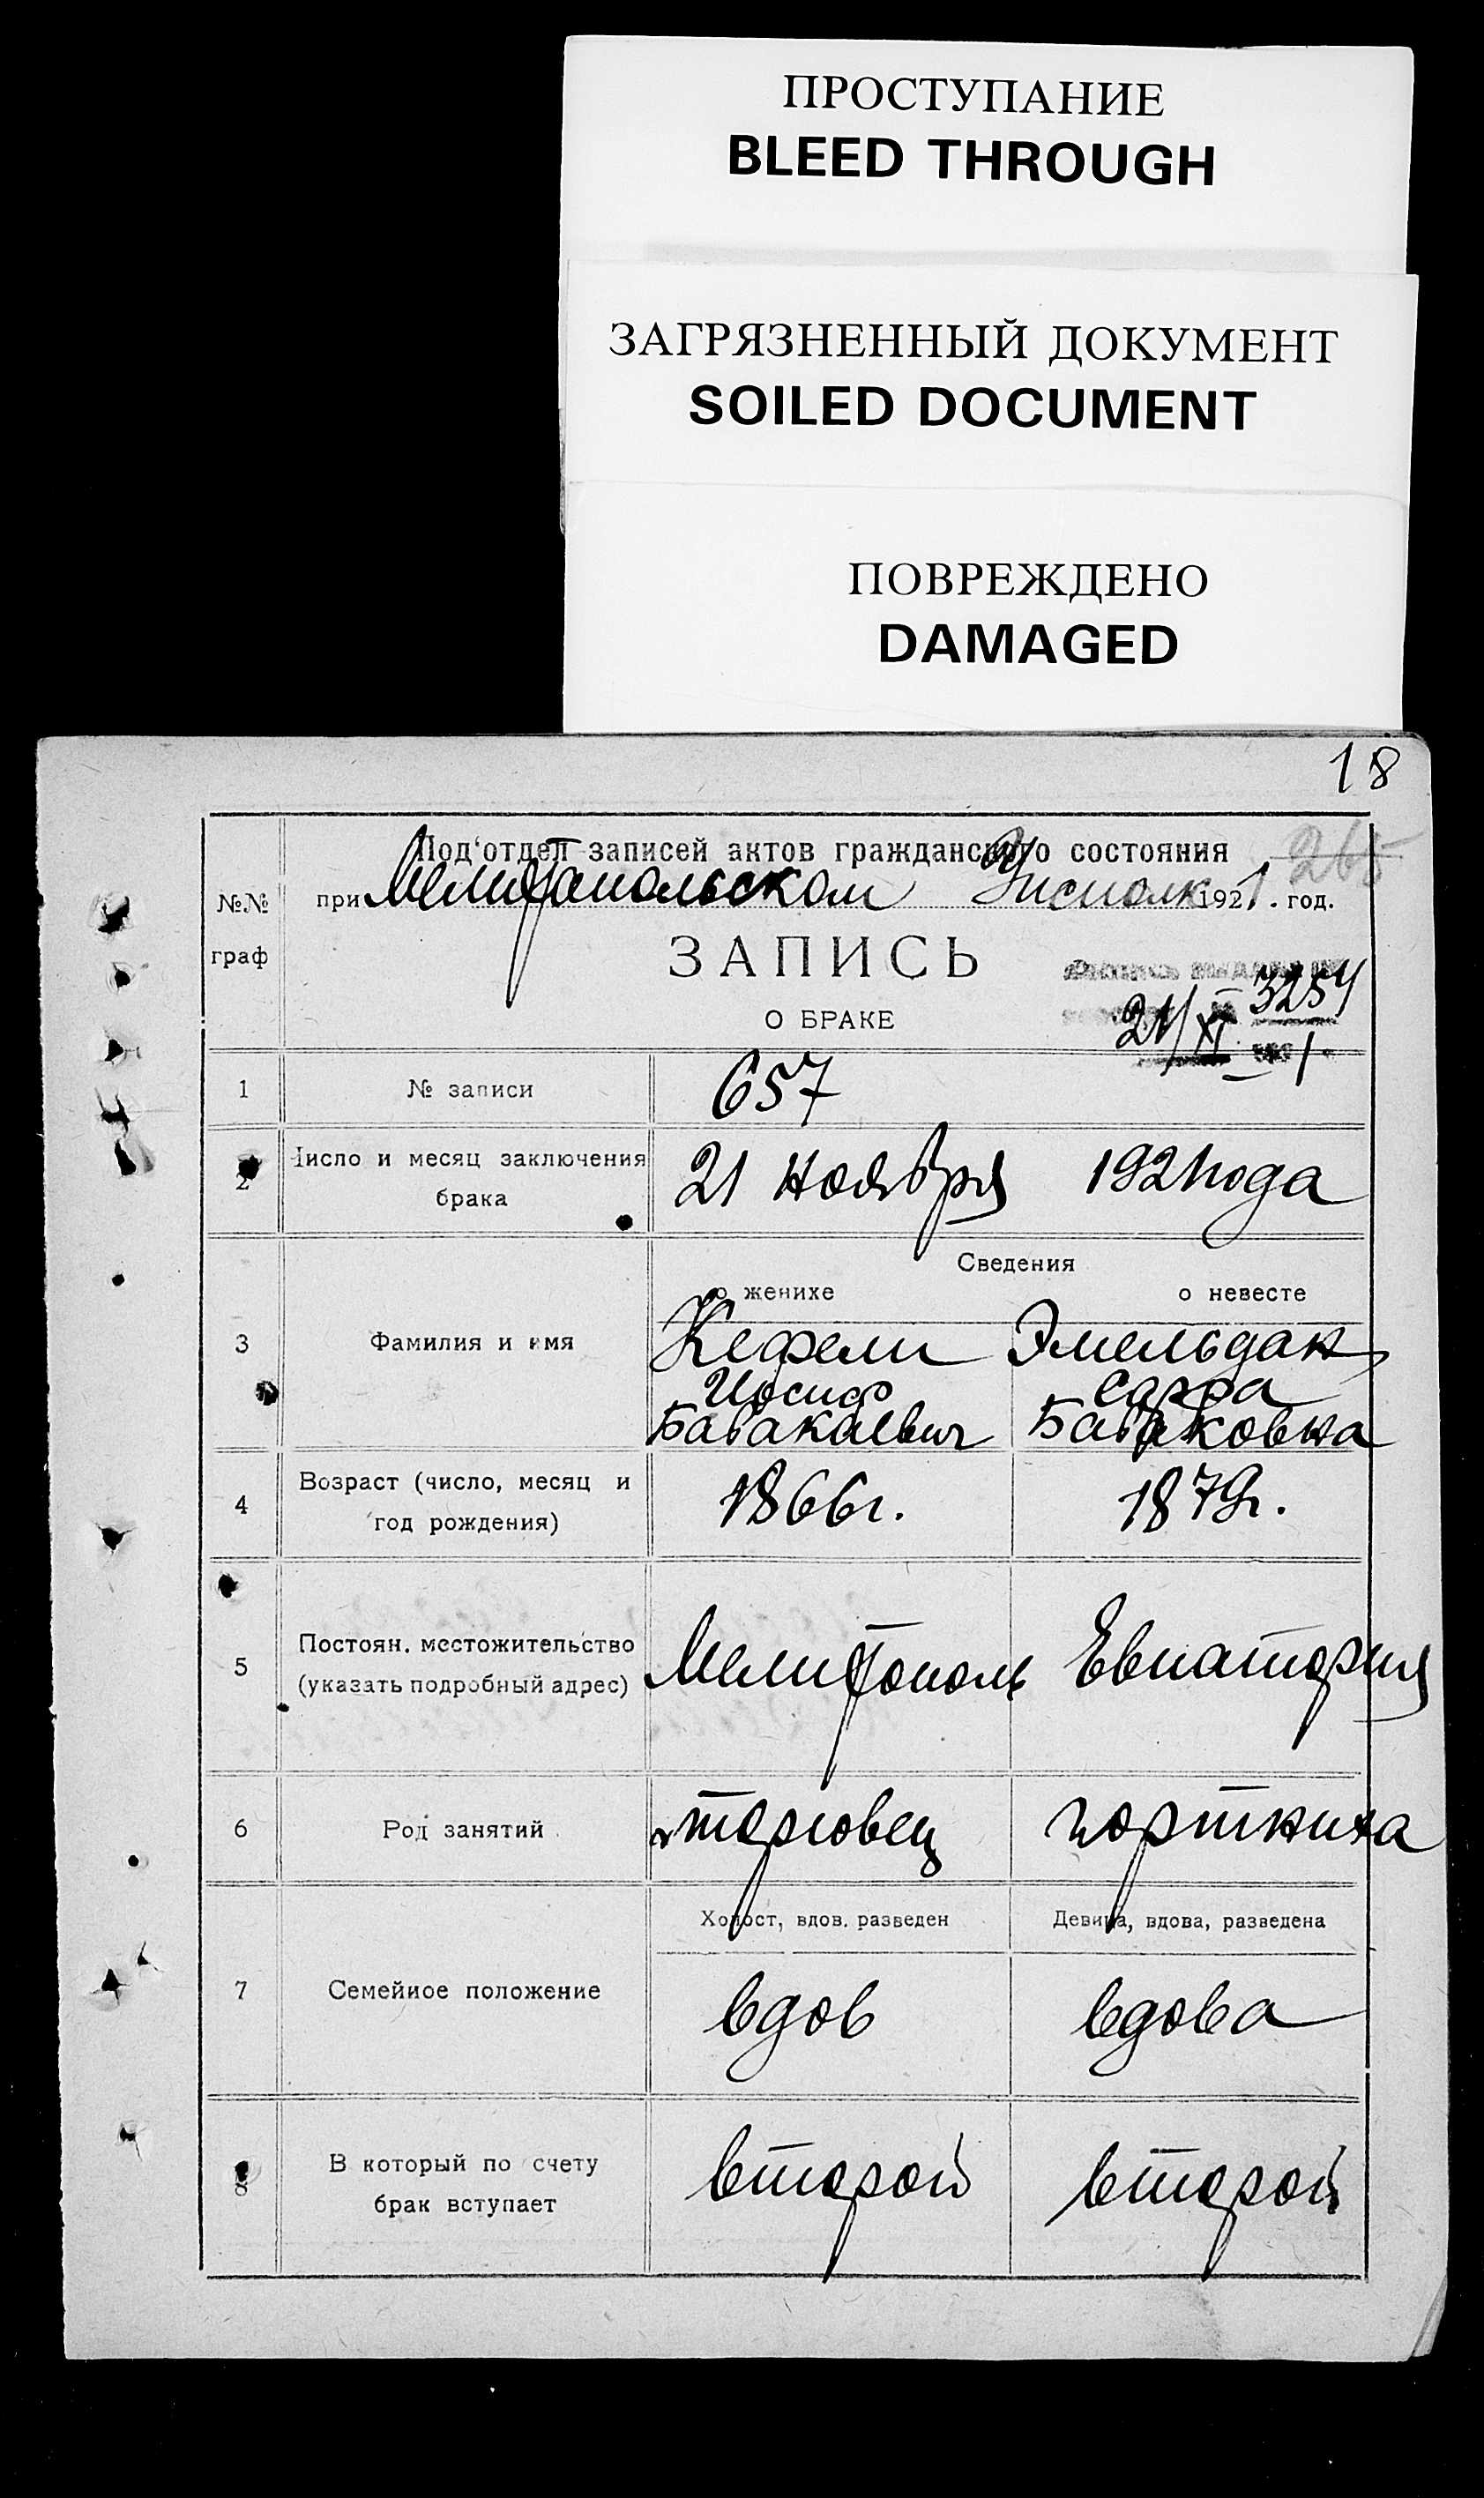 ПРОСТУПАНИЕ
BLEED THROUGH
ЗАГРЯЗНЕННЫЙ ДОКУМЕНТ
SOILED DOCUMENT
ПОВРЕЖДЕНО
DAMAGED
18
Под'отдел записей актов гражданского состояния
265
№№ граф
при Мелитопольском Уисполк 1921. год.
ЗАПИСЬ
О БРАКЕ
3254
21/XI 1
1 № записи 657
2 Число и месяц заключения брака 21 Ноября 1921 года
Сведения
о женихе о невесте
3 Фамилия и имя Кефели Эмельдак
Иосиф Сарра
Бабакаевич Бабаковна
4 Возраст (число, месяц и год рождения) 1866г. 1879г.
5 Постоян. местожительство (указать подробный адрес) Мелитополь Евпатория
6 Род занятий торговец портниха
Холост, вдов. разведен Девица, вдова, разведена
7 Семейное положение вдов вдова
8 В который по счету брак вступает второй второй